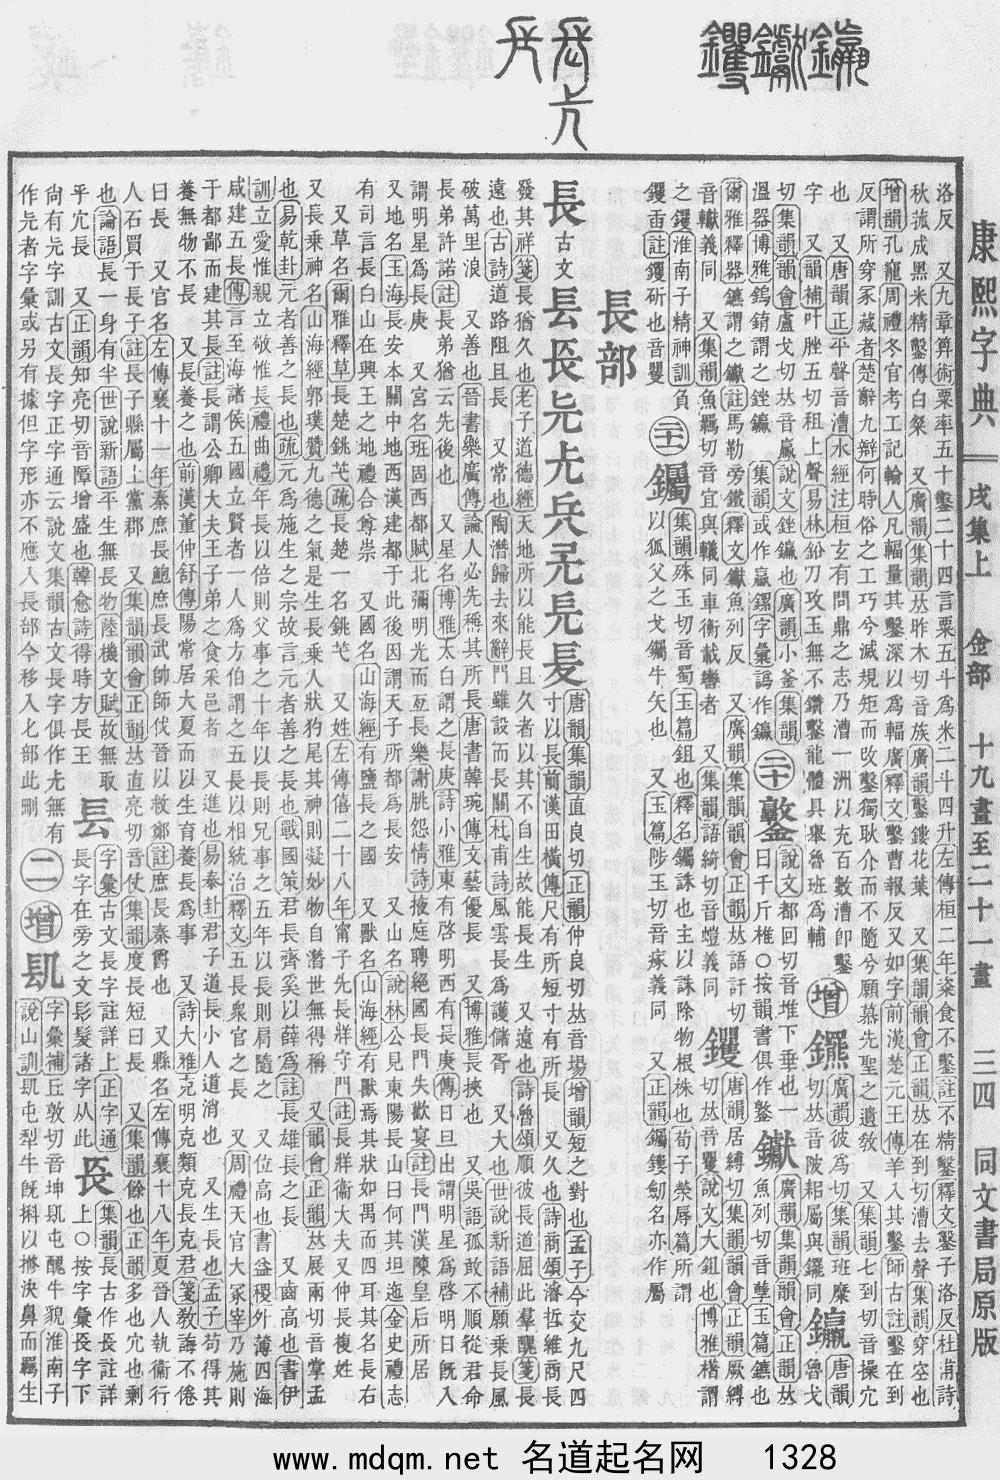 康熙字典 戌集上 金部 十九畫至二十一畫 三四 同文書局原版
洛反 又九章算術粟率五十鑿二十四言粟五斗為米二斗四升左傳桓二年粢食不鑿註不精鑿釋文鑿子洛反杜甫詩
秋菰成黑米精鑿傳白粲 又廣韻集韻𠀤昨木切音族廣韻鑿鏤花葉 又集韻韻會正韻𠀤在到切漕去聲集韻穿空也
增韻孔竉周禮冬官考工記輪人凡輻量其鑿深以為輻廣釋文鑿曹報反又如字前漢楚元王傳羊入其鑿師古註鑿在到
反謂所穿冢藏者楚辭九辯何時俗之工巧兮滅規矩而改鑿獨耿介而不隨兮願慕先聖之遺敎 又集韻七到切音操穴
也 又唐韻正平聲音漕水經注桓玄有問鼎之志乃漕一洲以充百數漕卽鑿
字 又韻補叶脞五切租上聲易林鉛刀攻玉無不鑽鑿龍體具舉魯班為輔 增 廣韻彼為切集韻班糜
切𠀤音陂耜屬與䥯同 鑘 唐韻魯戈
切集韻韻會盧戈切𠀤音蠃說文銼鑘也廣韻小釜集韻
溫器博雅鎢錥謂之銼鑘 集韻或作蠃鏍字彙譌作鑘 二十 鐜 說文都回切音堆下垂也一
曰千斤椎○按韻書俱作鐜 钀 廣韻集韻韻會正韻𠀤
魚列切音孽玉篇鑣也
爾雅釋器鑣謂之钀註馬勒旁鐵釋文钀魚列反 又廣韻集韻韻會正韻𠀤語訐切
音轙義同 又集韻魚羈切音宜與轙同車衡載轡者 又集韻語綺切音螘義同 钁 唐韻居縛切集韻韻會正韻厥縛
切𠀤音矍說文大鉏也博雅櫡謂
之钁淮南子精神訓負
钁臿註钁斫也音矍 二十一 钃 集韻殊玉切音蜀玉篇鉏也釋名钃誅也主以誅除物根株也荀子榮辱篇所謂
以狐父之戈钃牛矢也 又玉篇陟玉切音瘃義同 又正韻钃鏤劒名亦作屬
長部
長 古文 镸 唐韻集韻直良切正韻仲良切𠀤音場增韻短之對也孟子今交九尺四
寸以長前漢田橫傳尺有所短寸有所長 又久也詩商頌濬哲維商長
發其祥箋長猶久也老子道德經天地所以能長且久者以其不自生故能長生 又遠也詩魯頌順彼長道屈此羣醜箋長
遠也古詩道路阻且長 又常也陶潛歸去來辭門雖設而長關杜甫詩風雲長為護儲胥 又大也世說新語補願乘長風
破萬里浪 又善也晉書樂廣傳論人必先稱其所長唐書韓琬傳文藝優長 又博雅長挾也 又吳語孤敢不順從君命
長弟許諾註長弟猶云先後也 又星名博雅太白謂之長庚詩小雅東有啓明西有長庚傳日旦出謂明星為啓明日旣入
謂明星為長庚 又宮名班固西都賦北彌明光而亙長樂謝朓怨情詩掖庭聘絕國長門失歡宴註長門漢陳皇后所居
又地名玉海長安本關中地西漢建都于此後因謂天子所都為長安 又山名說林公見東陽長山曰何其坦迤金史禮志
有司言長白山在興王之地禮合尊崇 又國名山海經有鹽長之國 又獸名山海經有獸焉其狀如禺而四耳其名長右
又草名爾雅釋草長楚銚芅疏長楚一名銚芅 又姓左傳僖二十八年甯子先長牂守門註長牂衞大夫又仲長複姓
又長乗神名山海經郭璞贊九德之氣是生長乗人狀狗尾其神則凝妙物自潛世無得稱 又韻會正韻𠀤展兩切音掌孟
也易乾卦元者善之長也疏元為施生之宗故言元者善之長也戰國策君長齊奚以薛為註長雄長之長 又齒高也書伊
訓立愛惟親立敬惟長禮曲禮年長以倍則父事之十年以長則兄事之五年以長則肩隨之 又位高也書益稷外薄四海
咸建五長傳言至海諸侯五國立賢者一人為方伯謂之五長以相統治釋文五長衆官之長 又周禮天官大冢宰乃施則
于都鄙而建其長註長謂公卿大夫王子弟之食采邑者 又進也易泰卦君子道長小人道消也 又生長也孟子苟得其
養無物不長 又長養之也前漢董仲舒傳陽常居大夏而以生育養長為事 又詩大雅克明克類克長克君箋敎誨不倦
曰長 又官名左傳襄十一年秦庶長鮑庶長武帥師伐晉以救鄭註庶長秦爵也 又縣名左傳襄十八年夏晉人執衞行
人石買于長子註長子縣屬上黨郡 又集韻韻會正韻𠀤直亮切音仗集韻度長短曰長 又集韻餘也正韻多也宂也剩
也論語長一身有半世說新語平生無長物陸機文賦故無取
乎宂長 又正韻知亮切音障增盛也韓愈詩得時方長王 镸 字彙古文長字註詳上正字通
長字在旁之文髟髮諸字从此 集韻長古作長註詳
上○按字彙長字下
尙有兂字訓古文長字正字通云說文集韻古文長字俱作𠑷無有
作兂者字彙或另有據但字形亦不應人長部今移入匕部此刪 二 增 镹 字彙補丘敦切音坤镹屯醜牛貌淮南子
說山訓镹屯犁牛旣㸹以𢱧決鼻而羈生
www.mdqm.net 名道起名网 1328